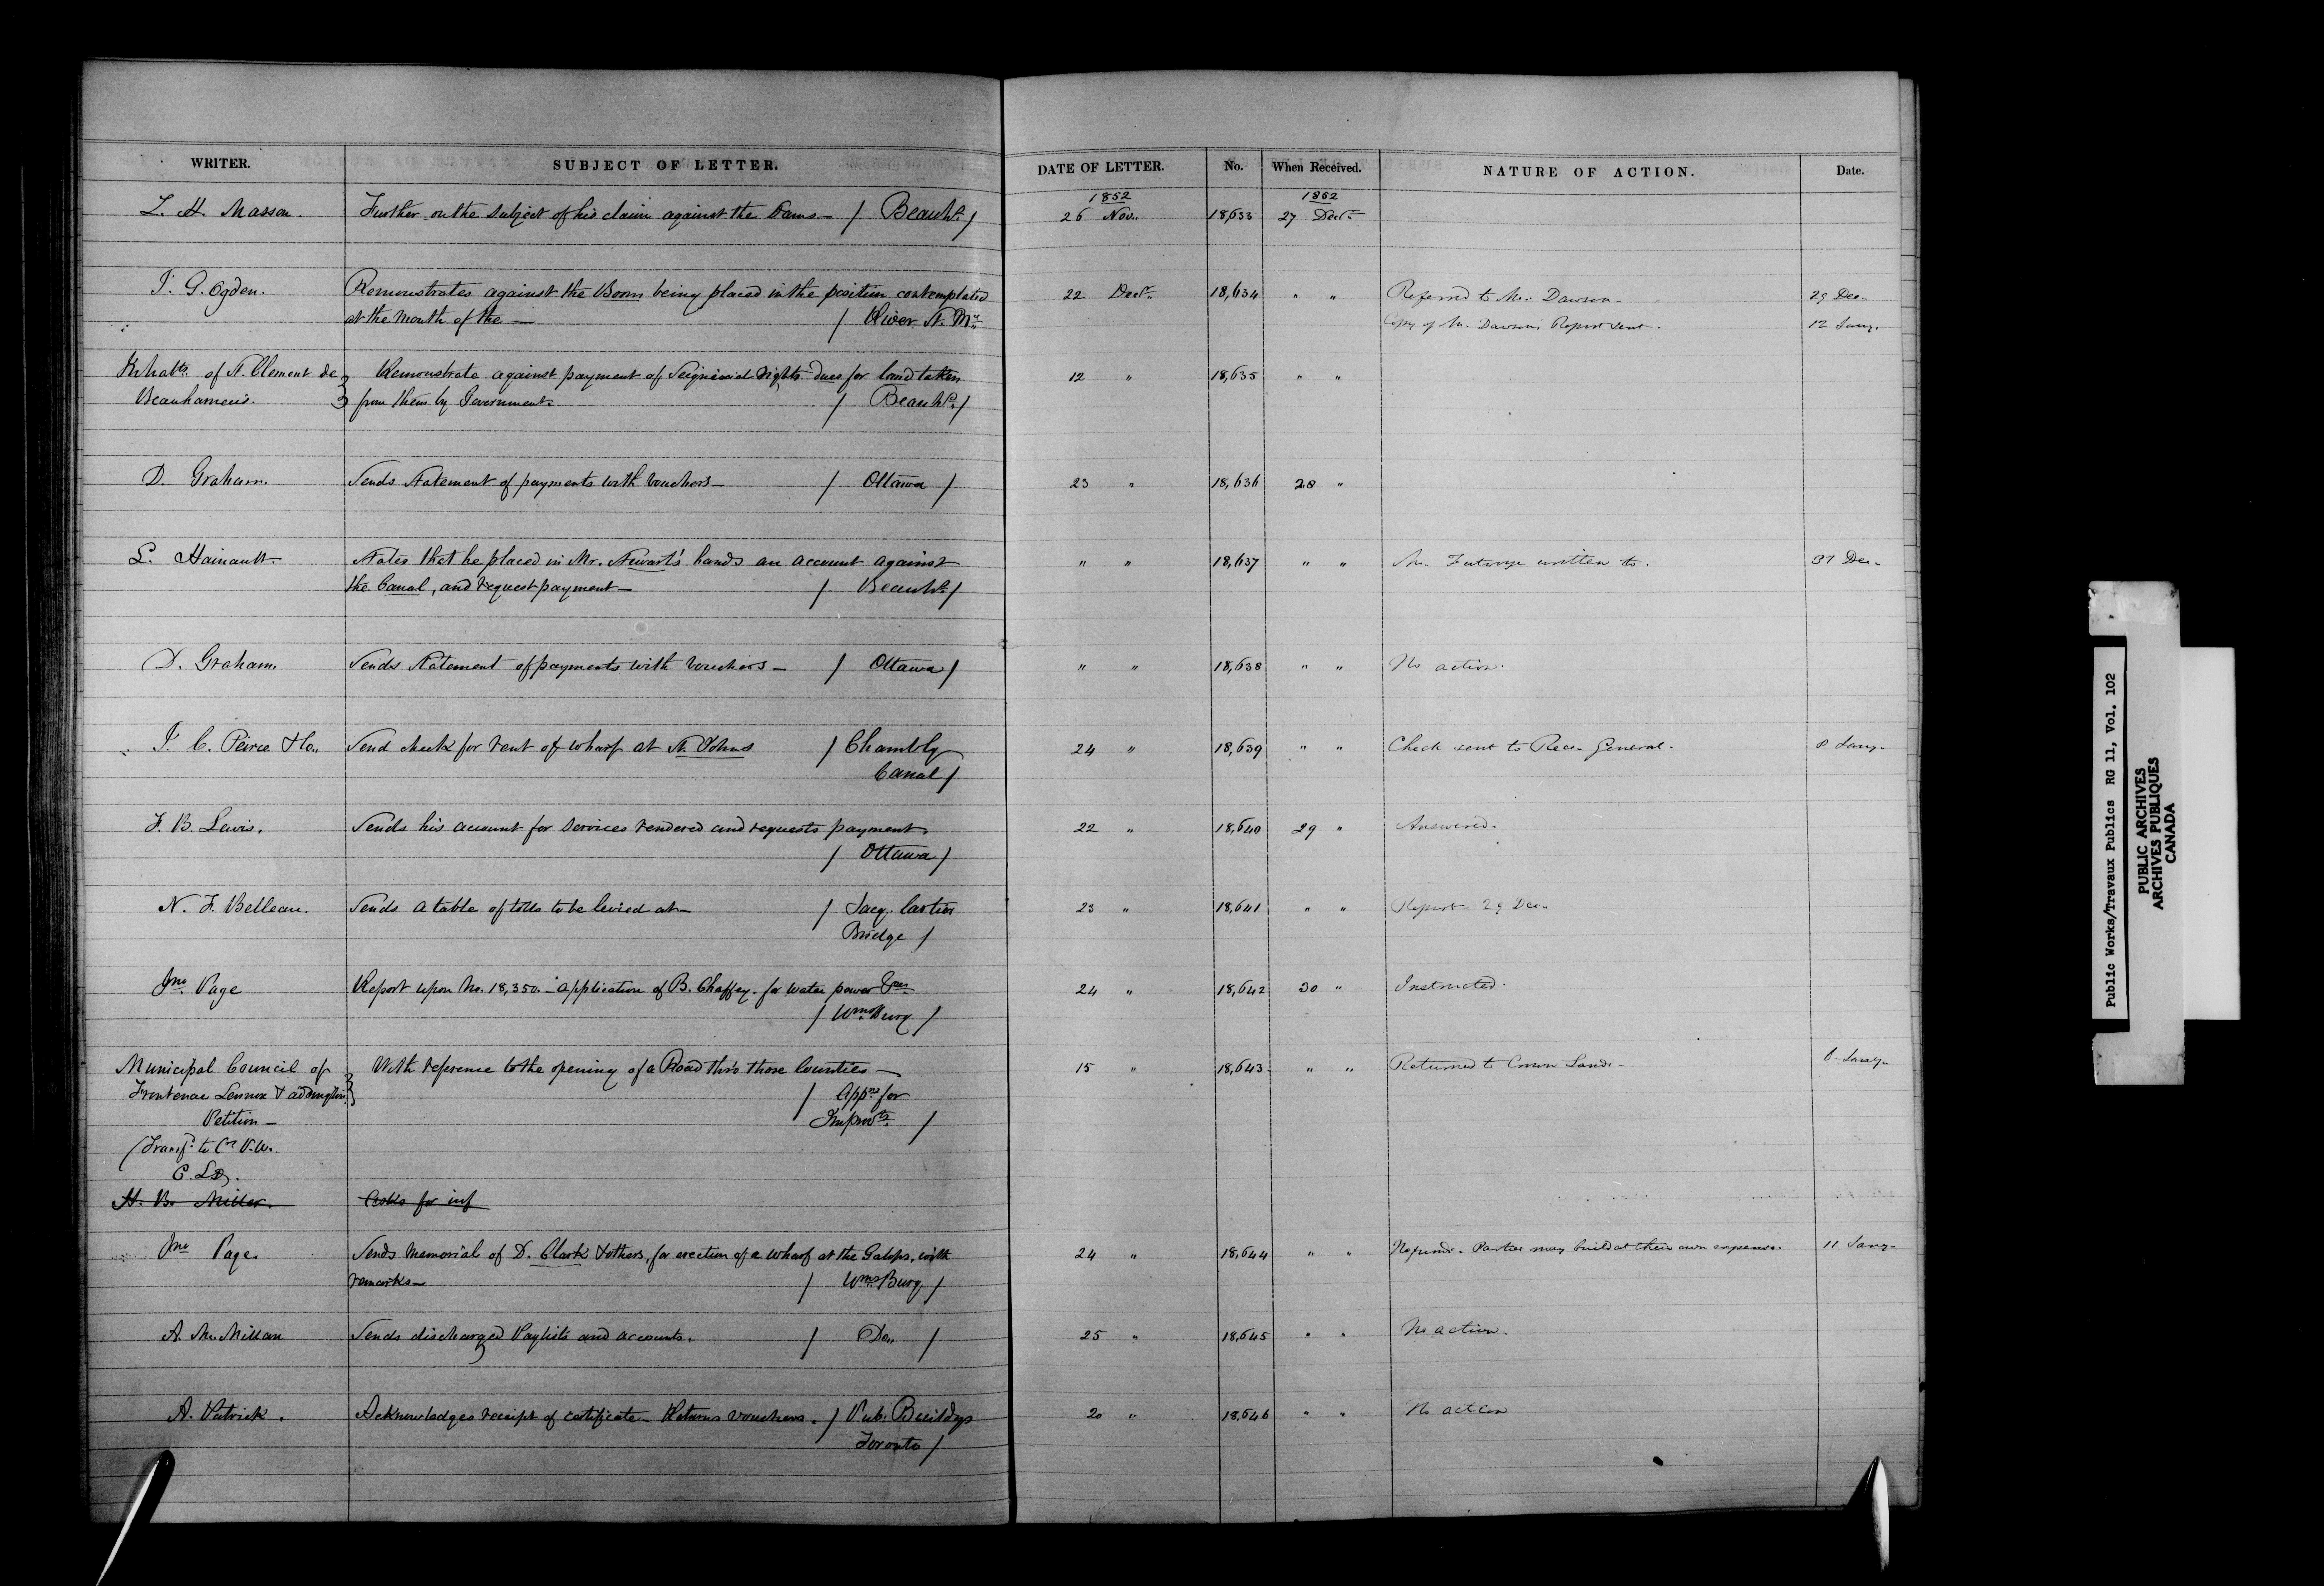 WRITER. SUBJECT OF LETTER. DATE OF LETTER. No. When Received. NATURE OF ACTION. Date.
1852 1852
L. H. Masson. Further on the subject of his claim against the Dams — / Beauhs. / 26 Nov. 18,633 27 Decr.
I. G. Ogden. Remonstrates against the Boom being placed in the position contemplated 22 Decr. 18,634 " " Referred to Mr. Dawson. 29 Dec.
at the mouth of the — / River St. Mce. Copy of Mr. Dawson's Report sent. 12 Jany.
Inhabts. of St. Clement de } Remonstrate against payment of Seignioral rights dues for land taken 12 " 18,635 " "
Beauharnois. } from them by Government. / Beauhs. /
D. Graham. Sends Statement of payments with vouchers — / Ottawa / 23 " 18,636 28 "
L. Hainault. States that he placed in Mr. Stewart's hands an account against " " 18,637 " " Mr. written to. 31 Dec.
the Canal, and request payment — / Beauhs. /
D. Graham. Sends Statement of payments with vouchers — / Ottawa / " " 18,638 " " No action.
J. C. Peirce & Co. Send check for rent of wharf at St. Johns / Chambly 24 " 18,639 " " Check sent to Recr. General. 8 Jany.
Canal /
J. B. Lewis. Sends his account for services rendered and requests payment. 22 " 18,640 29 " Answered.
/ Ottawa /
N. F. Belleau. Sends a table of tolls to be levied at — / Jacq. Cartier 23 " 18,641 " " Report 29 Dec.
Bridge /
Jno. Page Report upon No. 18,350. — application of B. Chaffey. for water power 24 " 18,642 30 " Instructed.
/ Wmsburg /
Municipal Council of } With reference to the opening of a Road thro those Counties — 15 " 18,643 " " Returned to Crown Lands — 6 Jany.
Frontenac Lennox & Addington } / Appns. for
Petition — Improvts. /
(Transf. to P.W.
C. L. D.
H. B. Miller. Asks for inf
Jno. Page. Sends Memorial of D. Clark & others, for erection of a wharf at the Galops, with 24 " 18,644 " " No funds. Parties may build at their own expense. 11 Jany.
remarks — / Wmsburg. /
A. McMillan Sends discharged Paylists and accounts. / Do. / 25 " 18,645 " " No action.
A. Patrick. Acknowledges receipt of certificate — Returns vouchers. / Pub. Buildgs 20 " 18,646 " " No action
Toronto /
Public Works/Travaux Publics RG 11, Vol. 102
PUBLIC ARCHIVES
ARCHIVES PUBLIQUES
CANADA